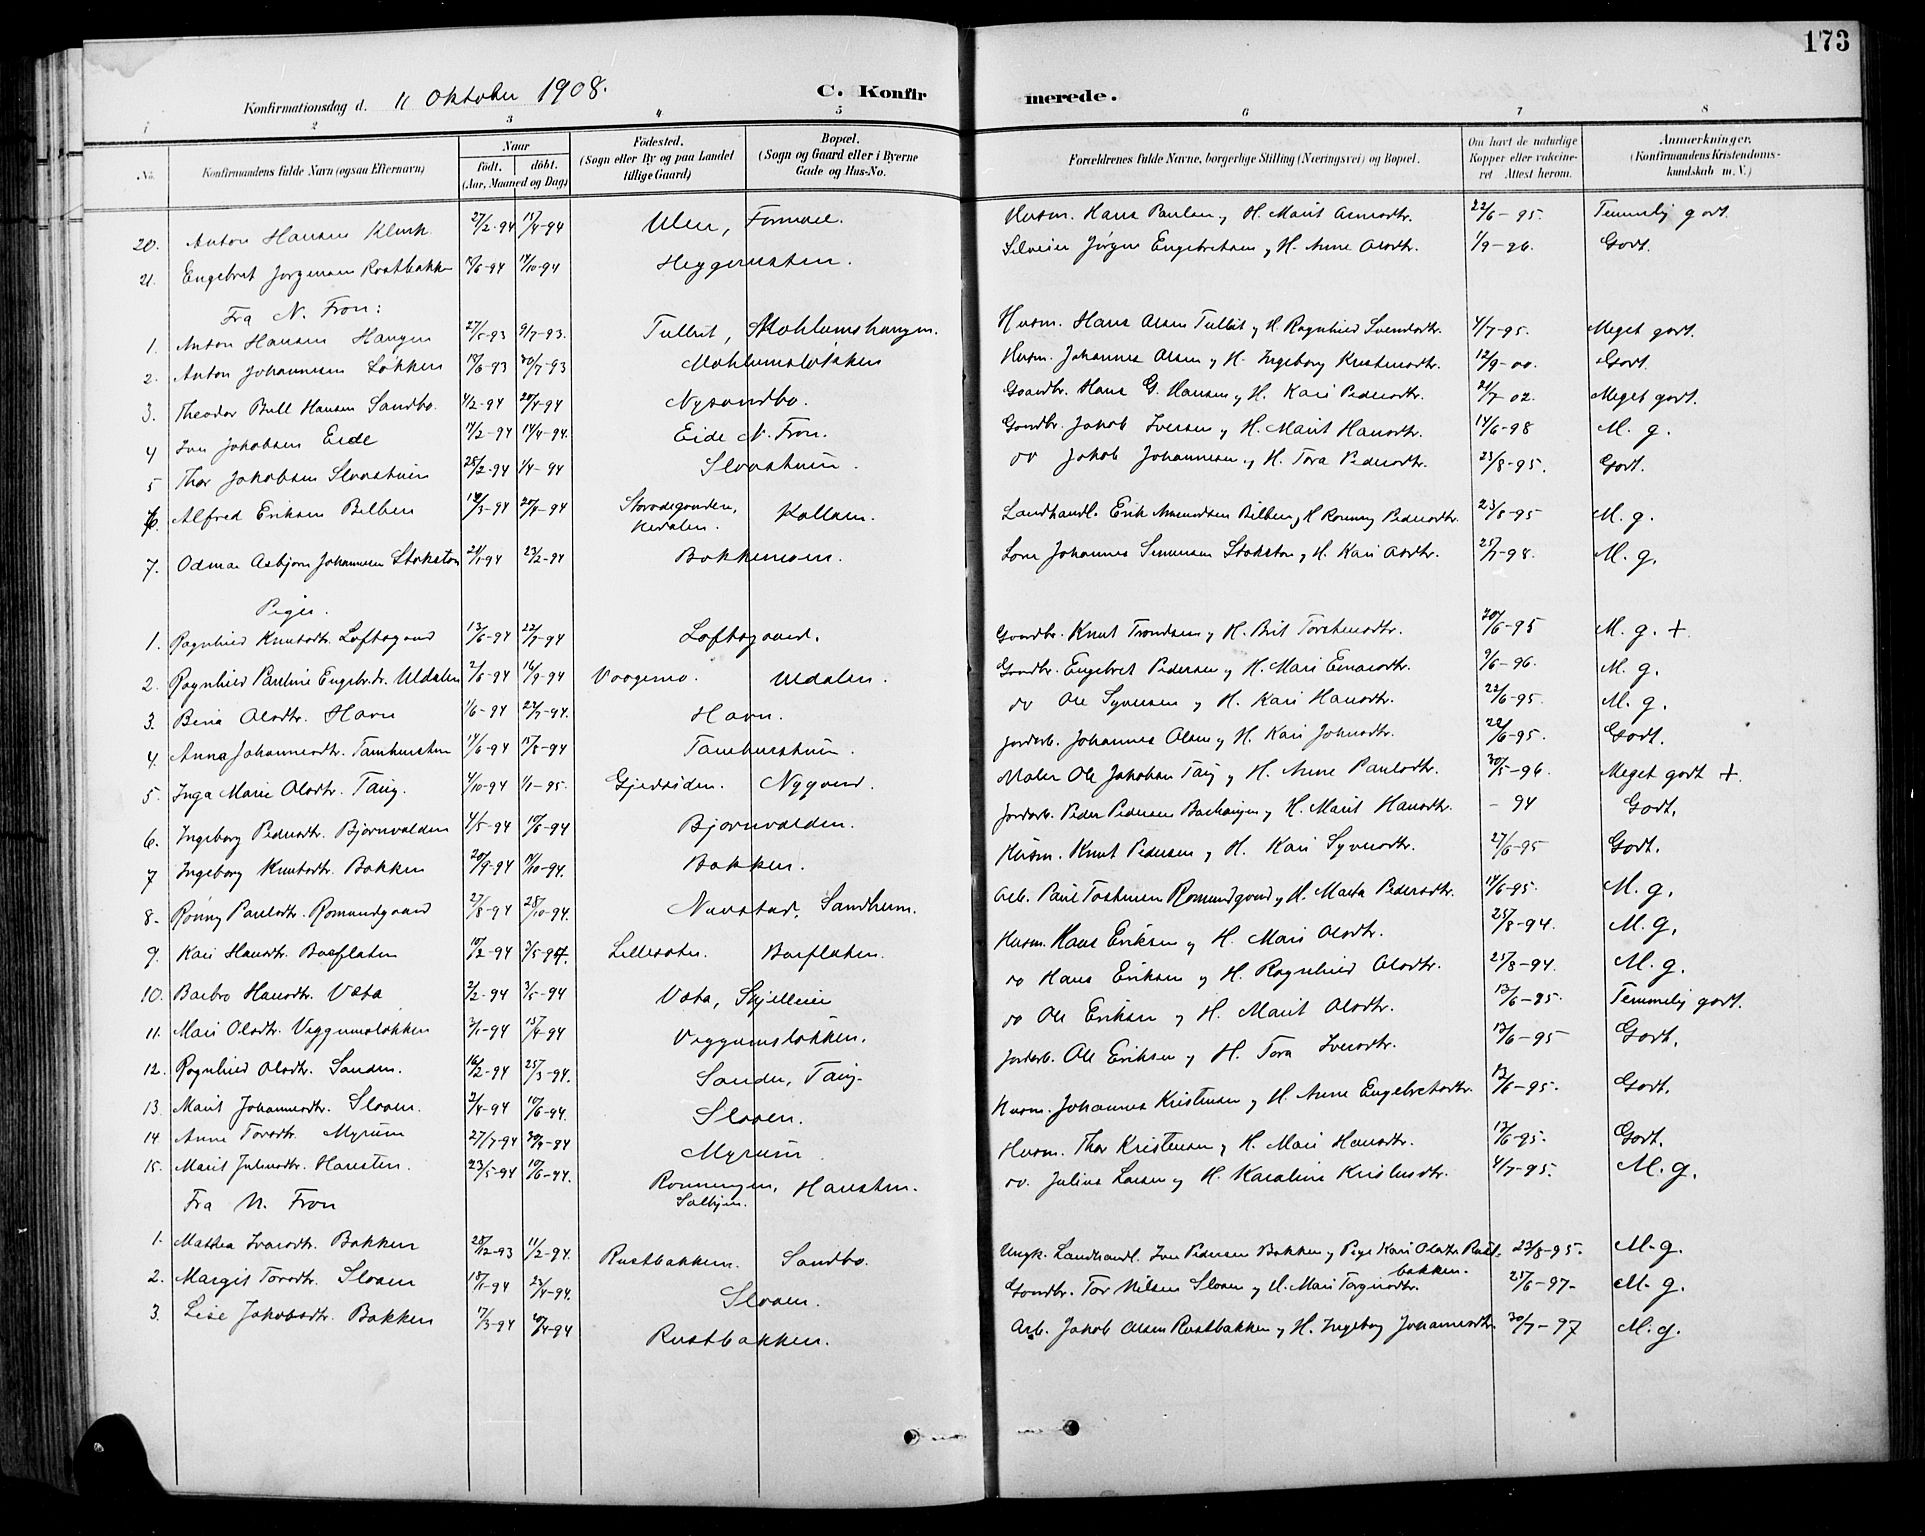 173
Konfirmationsdag d. 11 Oktober 1908.
C. Konfirmerede.
1 2 3 4 5 6 7 8
No. Konfirmandens fulde Navn (ogsaa Efternavn) Naar født. døbt. (Aar, Maaned og Dag) Fødested. (Sogn eller By og paa Landet tillige Gaard) Bopæl. (Sogn og Gaard eller i Byerne Gade og Hus-No. Forældrenes fulde Navne, borgerlige Stilling (Næringsvei) og Bopæl. Om havt de naturlige Kopper eller vakcineret Attest herom. Anmærkninger. (Konfirmandens Kristendomskundskab m. V.)
20. Anton Hansen Klink 27/2-94 15/4-94 Ulen, Formoe. Husm. Hans Paulsen g H. Marit 22/6-95. Temmelig godt.
21. Engebret Jørgensen Rostbakken /6-94 14/10-94 Heggerusten. Jørgen Engebretsen g H. Anne Olsdtr. 1/9-96. Godt.
Fra N. Fron:
1. Anton Hansen Haugen 27/5-93 9/7-93. Tullut, Mohlumshaugen. Husm. Hans Olsen g H. Ragnhild Svendsdtr. 4/7-95. Meget godt.
2. Anton Johannesen Løkken 19/6-93 30/7-93 Mohlumsløkken Husm. Johannes Olsen g H. Ingeborg Kristensdtr. 12/9-00. Godt.
3. Theodor Bull Hansen Sandbo. 4/2-94 20/4-94 Nysandbo. Gaardbr. Hans G. Hansen g H. Kari Pedersdtr. 21/7-02. Meget godt.
4 Iver Jakobsen Eide 17/2-94 14/4-94. Eide N. Fron. Gaardbr. Jakob Iversen g H. Marit Hansdtr. 14/6-98 M. g.
5 Thor Jakobsen Slaastuen 25/2-94 1/4-94 Slaastuen. do Jakob Johannesen g H. Tora Pedersdtr. 23/8-95. Godt.
6. Alfred Eriksen Bilben 14/3-94 20/4-94 Kolloen. Landhandl. Erik Bilben g H. Rønnug Pedersdtr. 23/8-95 M. g.
7. Odmar Asbjørn Johannesen Stokstad 21/1-94 23/2-94 Bakkemoen. Johannes Simensen g H. Kari Olsdtr. 25/7-98. M. g.
Piger.
1. Ragnhild Knutsdtr. Loftsgaard 13/6-94 22/7-94 Loftsgaard. Gaardbr. Knut Trondsen g H. Brit Torstensdtr. 20/6-95 M. g. +
2. Ragnhild Pauline Engebr.dr. Uldalen 2/6-94 16/9-94 Vaagemo. Uldalen. Gaardbr. Engebret Pedersen g H. Mari Einarsdtr. 9/6-96. M. g.
3. Bina Olsdtr. Havn 1/6-94 22/7-94. Havn. do Ole Syversen g H. Kari Hansdtr. 22/6-95. M. g.
4. Anna Johannesdtr. 17/6-94 15/8-94 Jorderb. Johannes Olsen g H. Kari Johnsdtr. 22/6-95. Godt.
5. Inga Marie Olsdtr. Taig. 4/10-94 1/1-95. Gjedsiden. Nygaard. Maler Ole Jakobsen Taig g H. Anne Paulsdtr. 30/5-96. Meget godt +.
6. Ingeborg Pedersdtr. Bjørnvolden 4/5-94 10/6-94 Bjørnvolden. Jorderb. Peder Pedersen g H. Marit Hansdtr. -94 Godt.
7 Ingeborg Knutsdtr. Bakken 20/9-94 14/10-94. Bakken. Husm. Knut Pedersen g H. Kari Syversdtr. 27/6-95 Godt.
8. Rønnug Paulsdtr. Romundgaard 27/8-94 28/10-94. Naustad, Sandheim. Arb. Paul Romundgaard g H. Marta Pedersdtr. 14/6-95. M. g.
9. Kari Hansdtr. Baeflaten 10/2-94 3/5-94. Baeflaten. Husm. Hans Eriksen g H. Mari Olsdtr. 25/8-94. M. g.
10. Barbro Hansdtr. Vata 2/2-94 3/5-94 Vata, do Hans Eriksen g H. Ragnhild Olsdtr. 25/8-94. M. g.
11. Mari Olsdtr. Veggumsløkken 3/1-94 15/4-94 Veggumsløkken. do Ole Eriksen g H. Marit Olsdtr. 13/6-95. Temmelig godt.
12. Ragnhild Olsdtr. Sanden. 16/2-94 25/3-94. Sanden, Taig. Jorderb. Ole Eriksen g H. Tora Iversdtr. 13/6-95 Godt.
13. Marit Johannesdtr. Slaaen. 2/4-94 10/6-94. Slaaen. Husm. Johannes Kristensen g H. Anne Engebretsdtr. 13/6-95. Godt.
14 Anne Torsdtr. Myrum 27/7-94 30/9-94 Myrum Husm. Thor Kristensen g H. Mari Hansdtr. 13/6-95. Godt.
15. Marit Juliusdtr. Hausten. 23/5-94 10/6-94. Rønningen, Solhjem. Haugsten. do. Julius Larsen g H. Karoline Kristensdtr. 4/7-95. M. g.
Fra N. Fron
1. Mathea Iversdtr. Bakken 28/12-93 11/2-94. Rustbakken. Sandbo. Ungk. Landhandl. Iver Pedersen Bakken g Pige Kari Olsdtr Rustbakken. 23/8-95. M. g.
2. Margit Torsdtr. Slaaen 18/1-94 23/4-94. Slaaen. Gaardbr. Tor Nilsen Slaaen g H. Mari 25/6-97- M. g.
3. Lise Jakobsdtr. Bakken 17/3-94 20/4-94 Rustbakken. Arb. Jakob Olsen Rustbakken g H. Ingeborg Johannesdtr. 30/7-97 M. g.